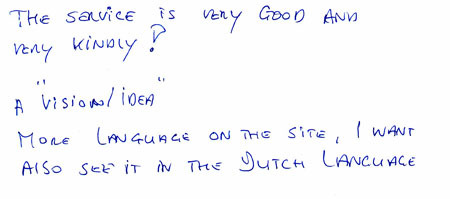 THE SERVICE IS VERY GOOD AND
VERY KINDLY!
A "VISION/IDEA"
MORE LANGUAGE ON THE SITE, I WANT
ALSO SEE IT IN THE DUTCH LANGUAGE